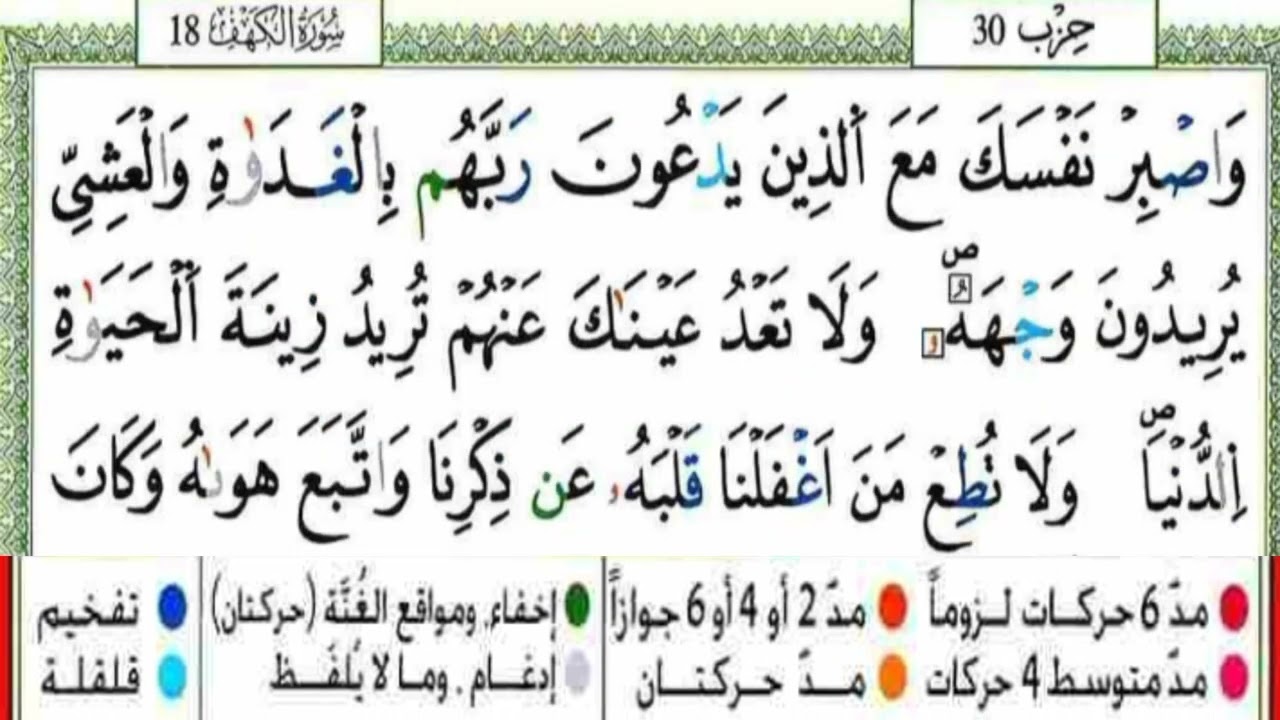 حِزْب 30
سُورَةُ الكَهْفِ 18
وَاصْبِرْ نَفْسَكَ مَعَ اَ۬لذِينَ يَدْعُونَ رَبَّهُم بِالْغَدَوٰةِ وَالْعَشِيِّ
يُرِيدُونَ وَجْهَهُۥۖ وَلَا تَعْدُ عَيْنَٰكَ عَنْهُمْ تُرِيدُ زِينَةَ اَ۬لْحَيَوٰةِ
اِ۬لدُّنْيَاۖ وَلَا تُطِعْ مَنَ اَغْفَلْنَا قَلْبَهُۥ عَن ذِكْرِنَا وَاتَّبَعَ هَوَىٰهُ وَكَانَ
مدّ 6 حركات لـزوماً مدّ 2 أو 4 أو 6 جوازاً إخفاء، ومواقع الغُنَّة (حركتان) تفخيم
مدّ متوسط 4 حركات مـدّ حـركتـان إدغـام ، ومـا لا يُلفَـظ قلقلـة